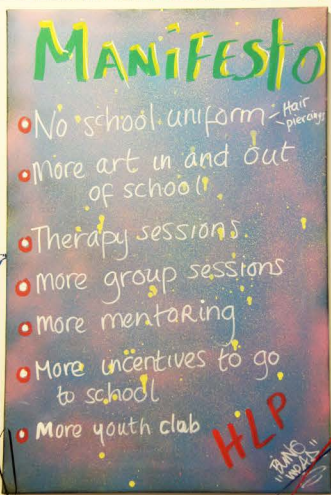 MANiFESto
No school uniform
Hair
piercings
More art in and out
of school
Therapy sessions.
More group sessions
More mentaring
More incentives to go
to school
More youth club
HLP